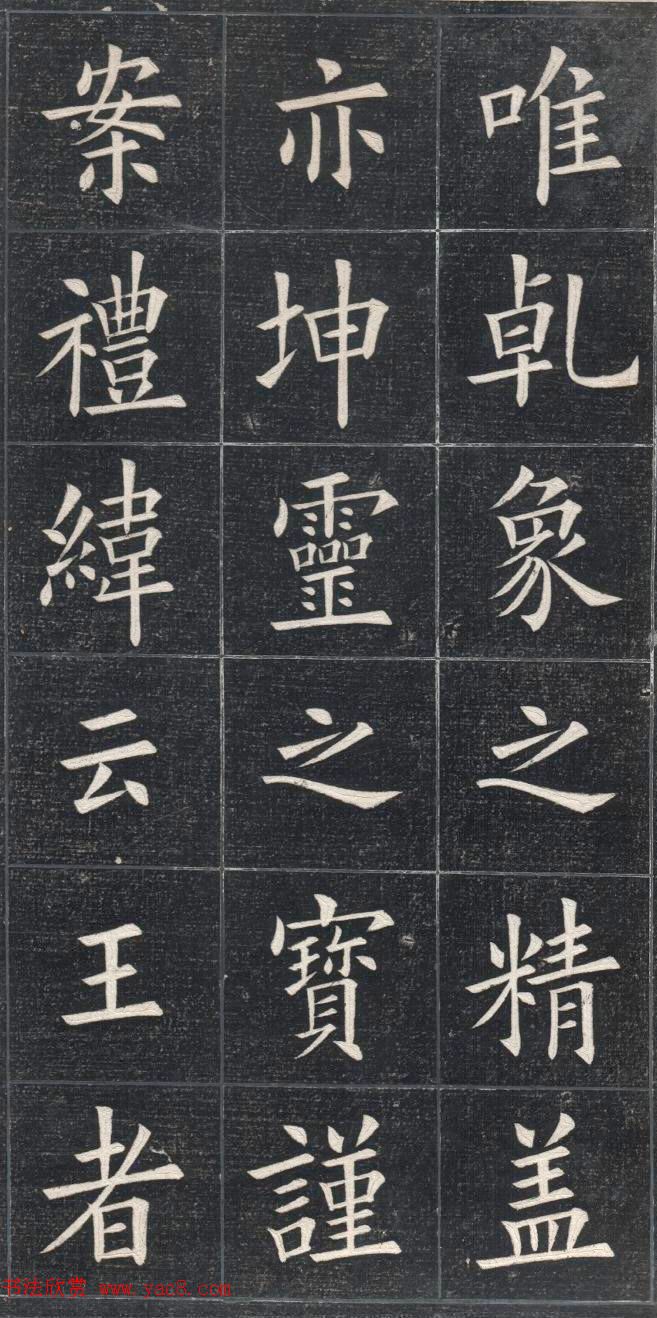 唯乹象之精盖
亦坤靈之寳謹
案禮緯云王者
书法欣赏 www.yac8.com